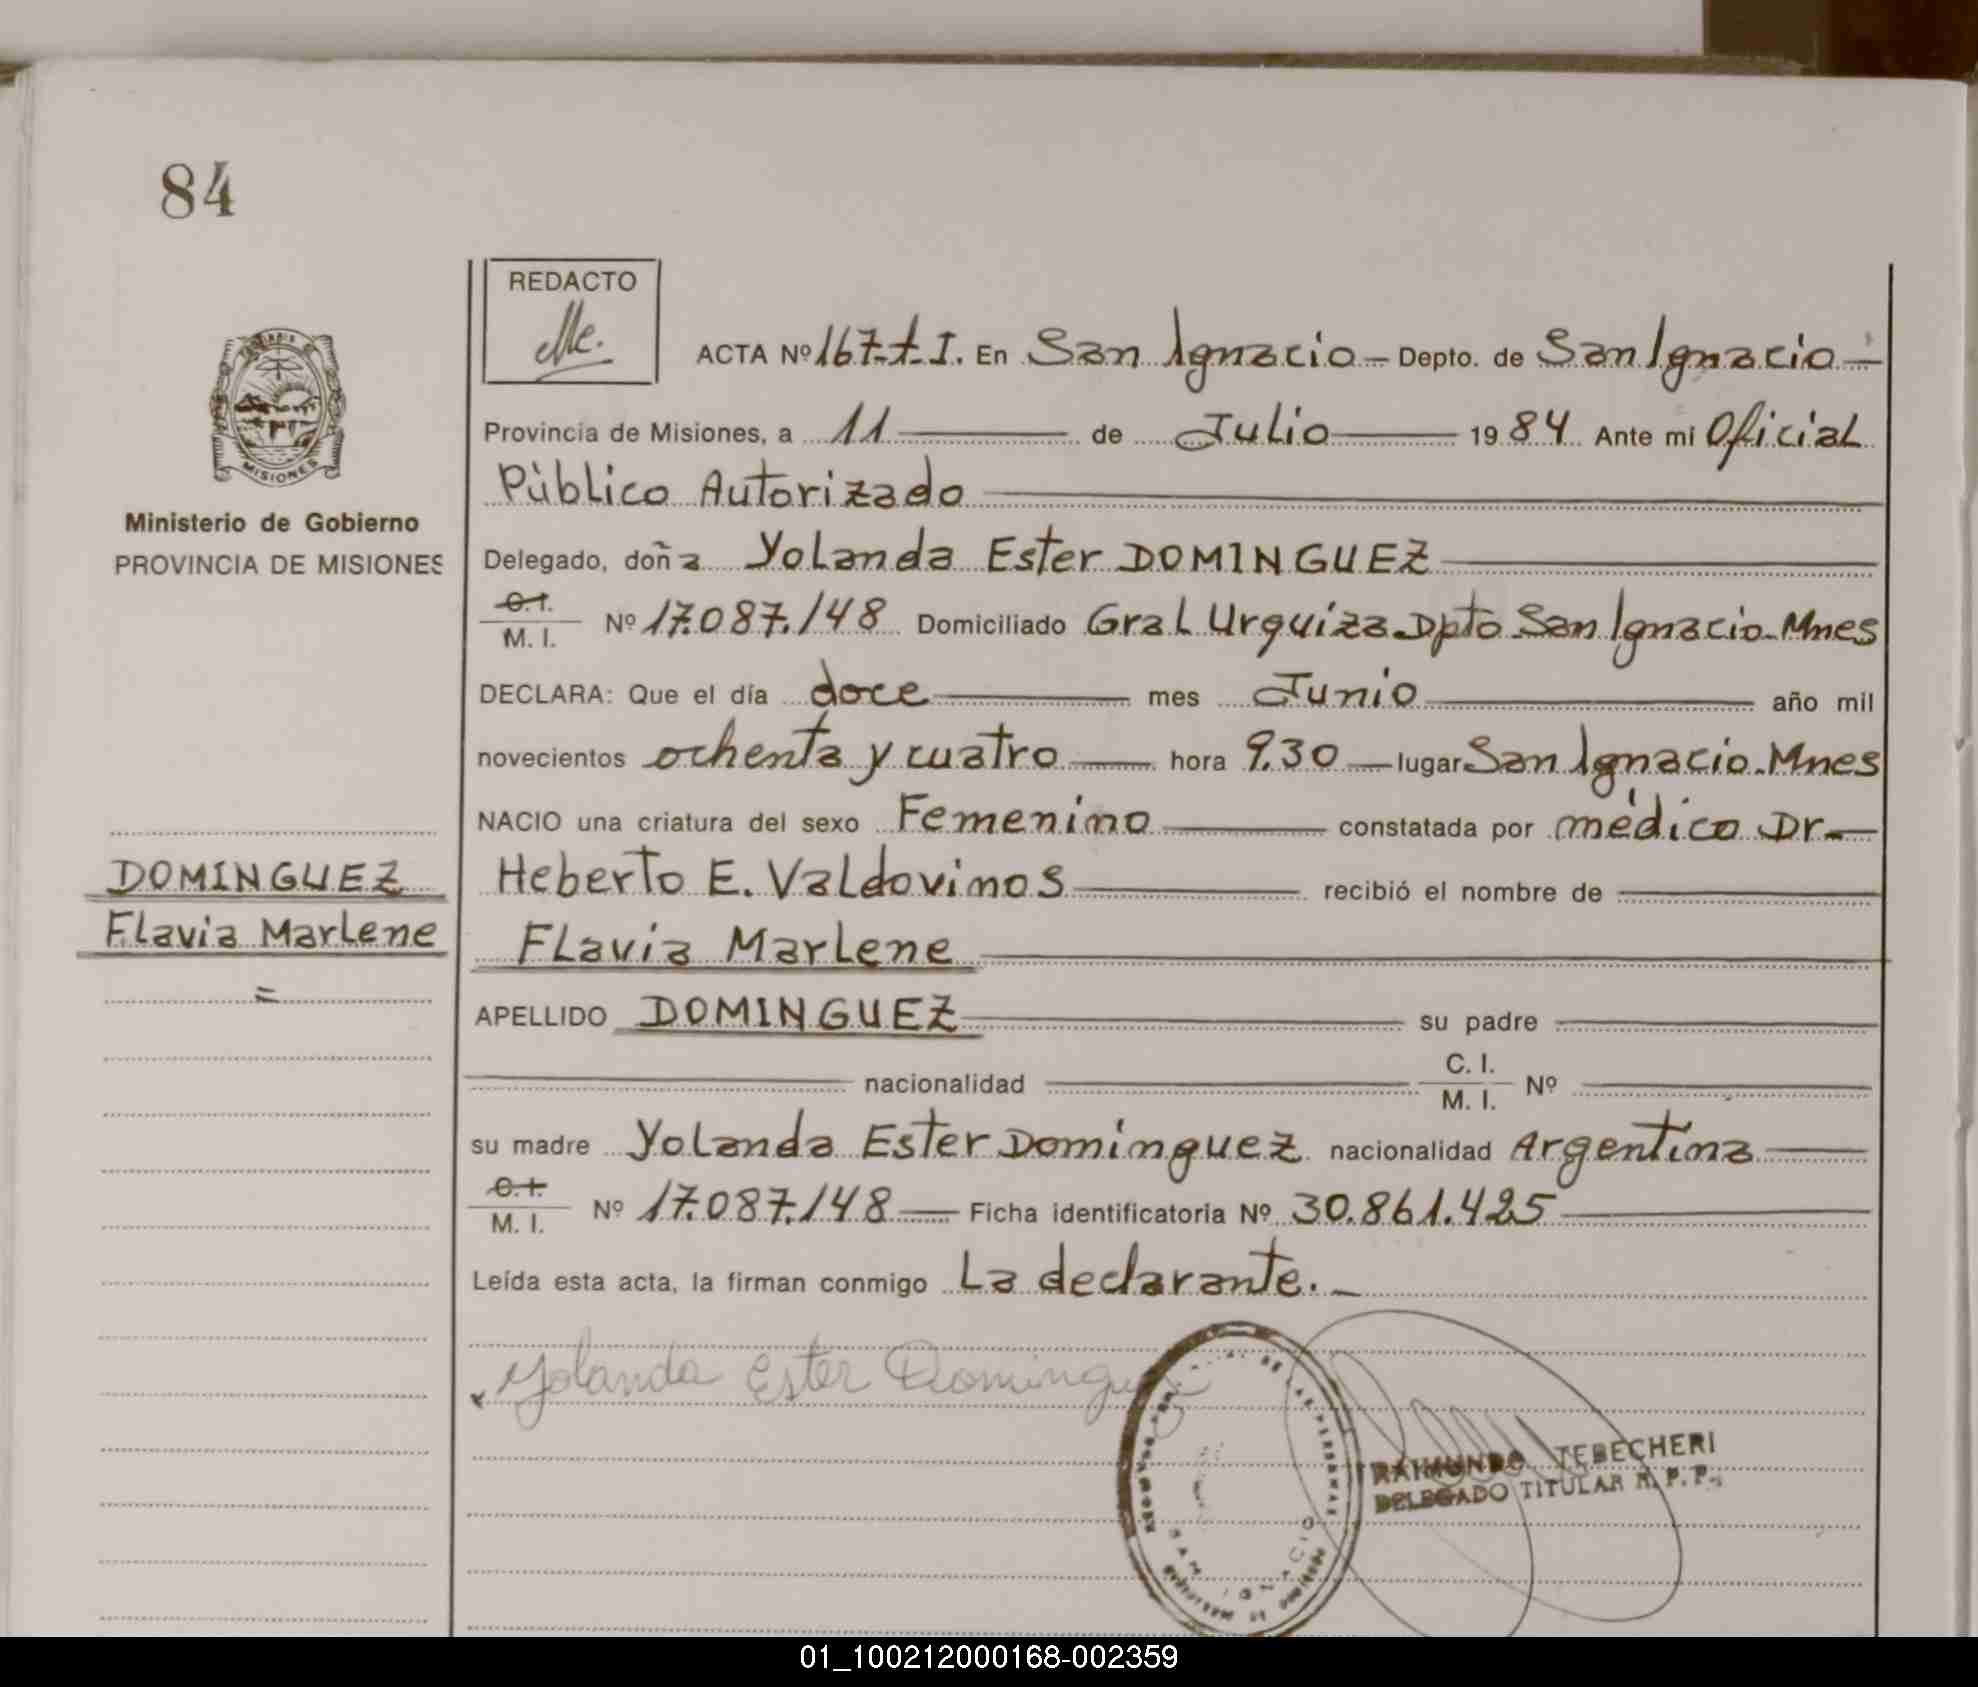 84
REDACTO
ACTA Nº 167-T-I. En San Ignacio - Depto. de San Ignacio -
Provincia de Misiones, a 11 de Julio 1984 Ante mi Oficial
Público Autorizado
Ministerio de Gobierno
PROVINCIA DE MISIONES
MISIONES
Delegado, doña Yolanda Ester DOMINGUEZ
C.I.
M. I. Nº 17.087.148 Domiciliado Gral Urquiza Dpto San Ignacio-Mnes
DECLARA: Que el día doce mes Junio año mil
novecientos ochenta y cuatro hora 9.30 lugar San Ignacio-Mnes
NACIO una criatura del sexo Femenino constatada por médico Dr-
Heberto E. Valdovinos recibió el nombre de
DOMINGUEZ
Flavia Marlene
=
Flavia Marlene
APELLIDO DOMINGUEZ su padre
nacionalidad C. I.
M. I. Nº
su madre Yolanda Ester Dominguez nacionalidad Argentina
C.I.
M. I. Nº 17.087.148 Ficha identificatoria Nº 30.861.425
Leída esta acta, la firman conmigo La declarante.-
Yolanda Ester Dominguez
DE LAS PERSONAS
SAN IGNACIO
RAIMUNDO TEBECHERI
DELEGADO TITULAR R. P. P.
01_100212000168-002359